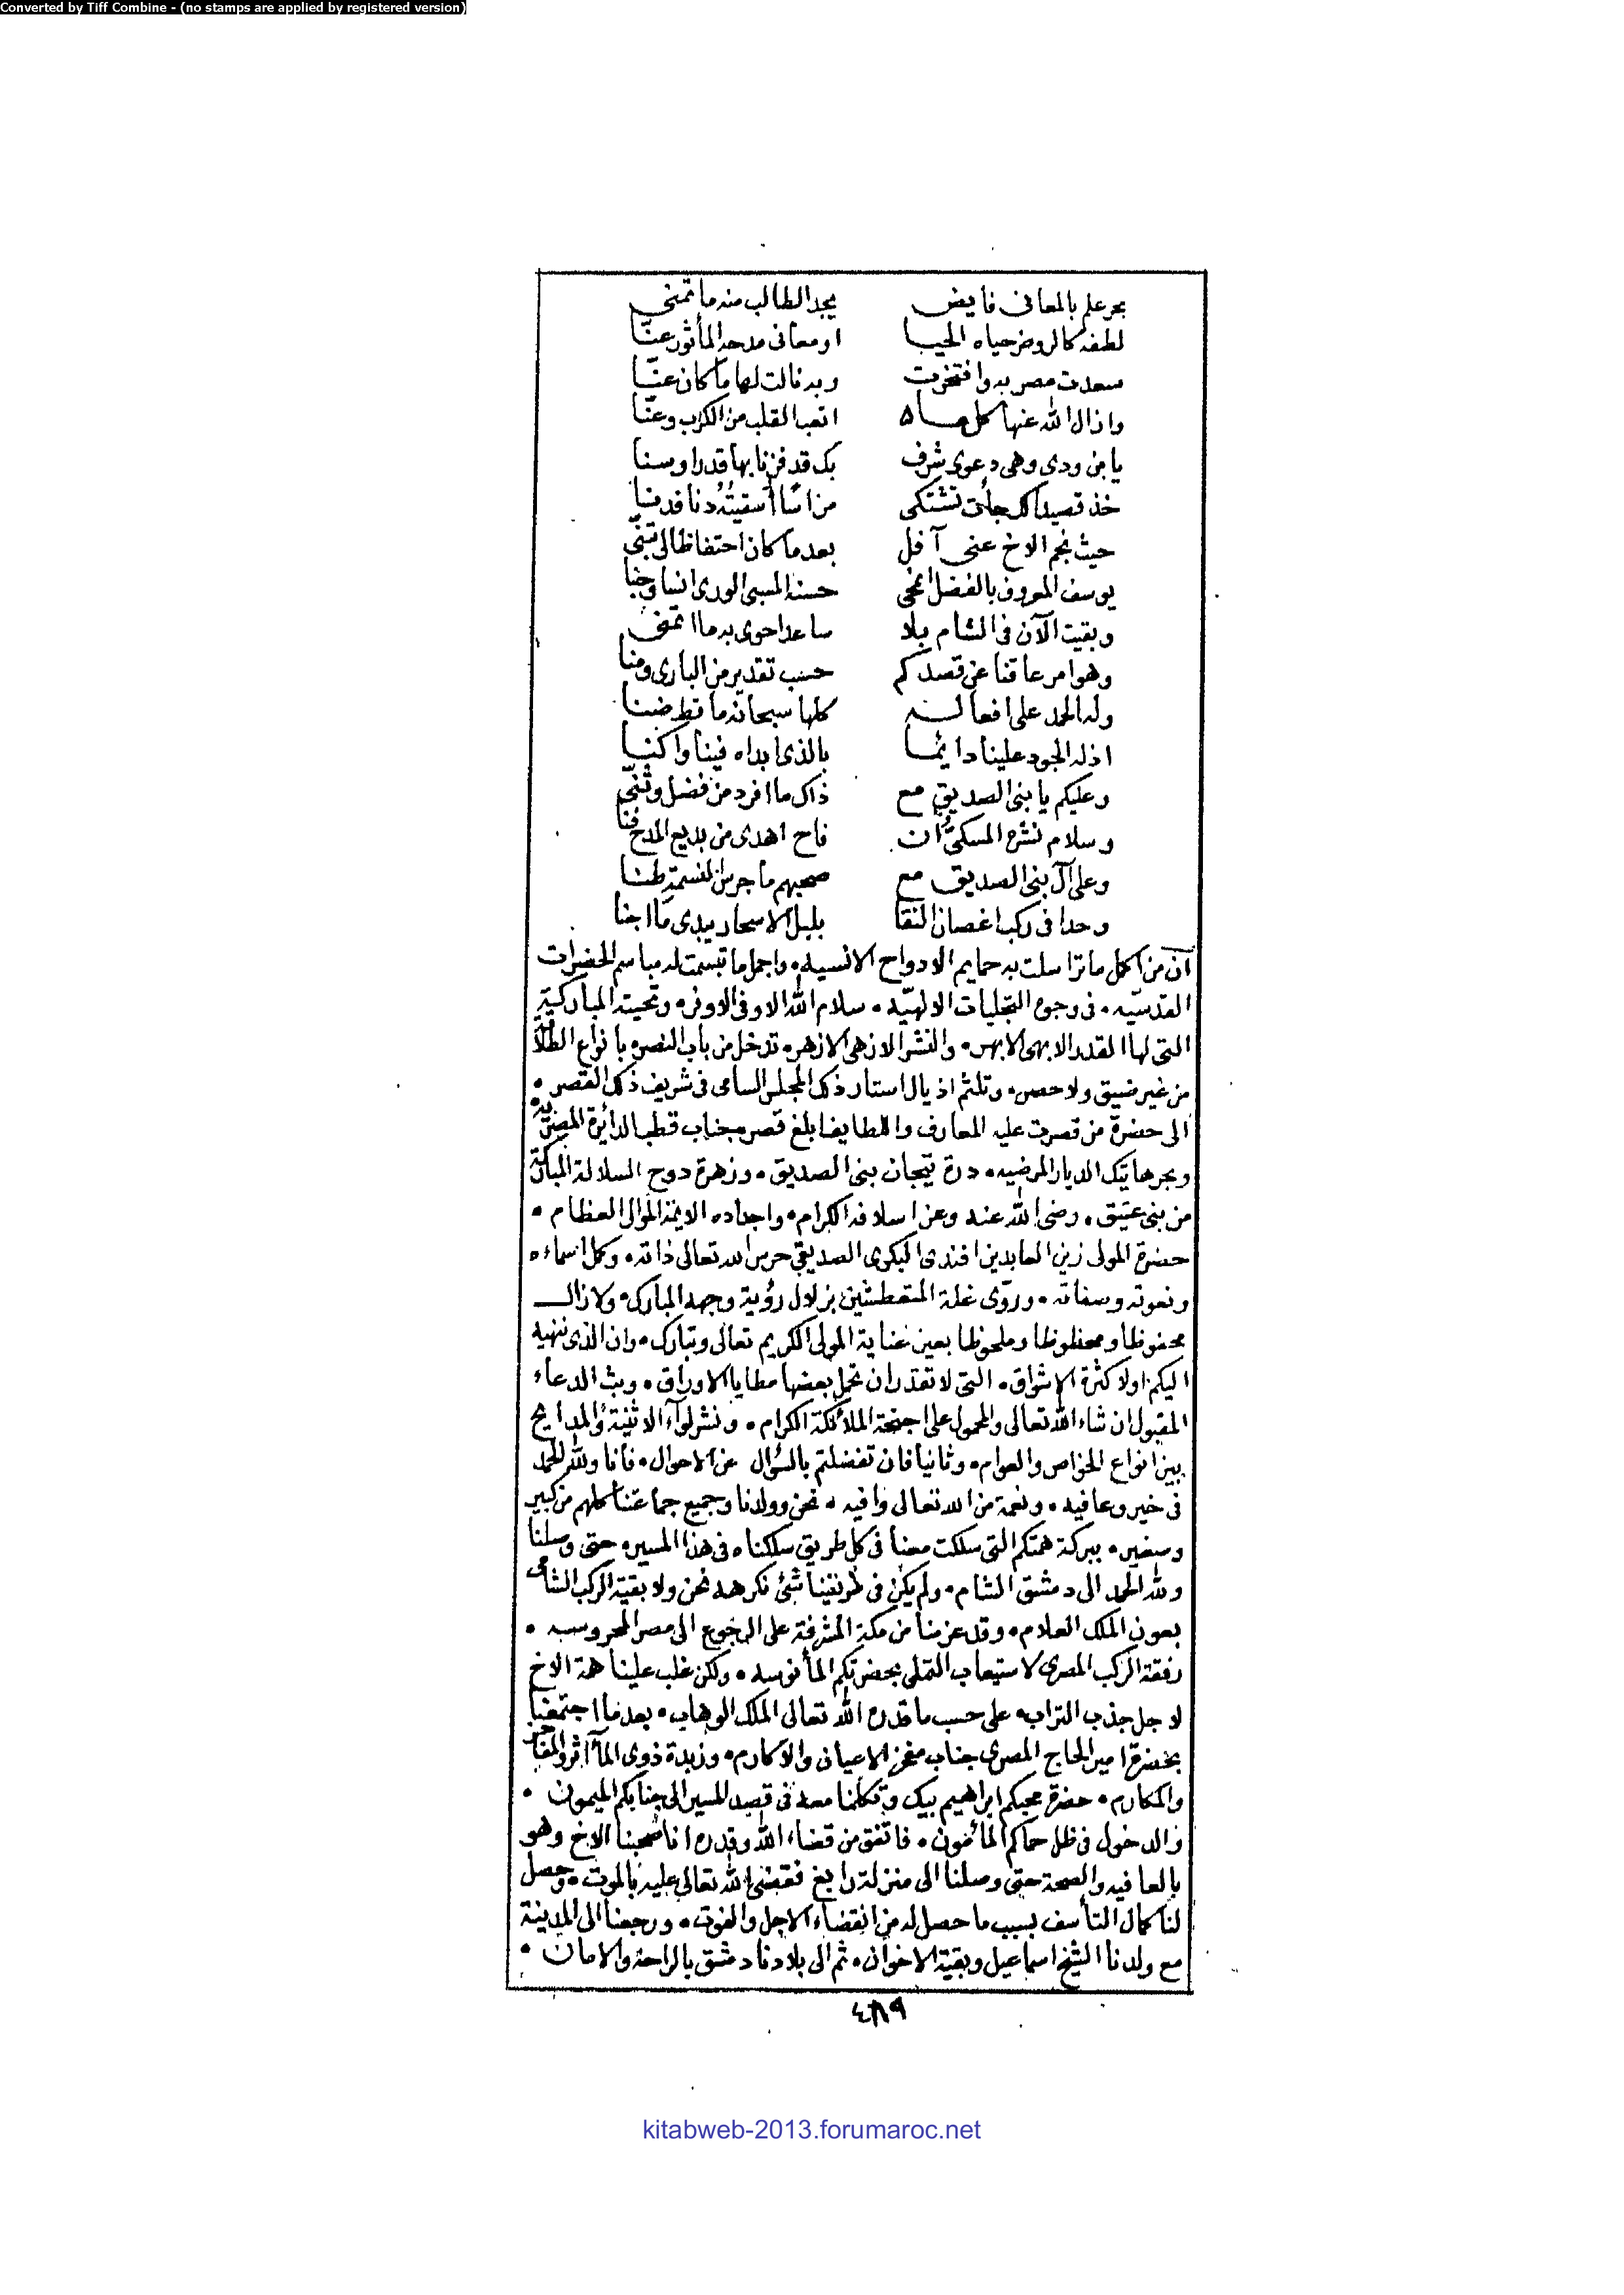 Converted by Tiff Combine - (no stamps are applied by registered version)
بحر علم بالمعانى فايض يجد الطالب منه ما تمنى
لطفه كالروض حياه الحيا او معانى مدحه المأثور عنا
سعدت مصر به وافتخرت وبه نالت لها ما كان عنا
وازال الله عنها كل ما اتعب القلب من الكرب وعنا
يا بن ودى وهى دعوى شرف بك قد فزنا بها قدرا وسنا
خذ قصيدا لك جأت تشتكى
حيث نجم الاخ عنى آفل بعد ما كان احتفاظا لى
يوسف المعروف بالفضل اخى حسنه المسبى الورى انسا وجنا
وبقيت الآن فى الشام بلا ساعدا حوى به ما اتمنى
وهو امر عاقنا عن قصدكم حسب تقدير من البارى ومنا
وله الحمد على افعاله كلها سبحانه ما قط ضنا
اذ له الجود علينا دايما بالذى ابداه فينا واكنا
وعليكم يا بنى الصديق مع ذاك ما افرد من فضل وثنى
وسلام نشره المسكى ان فاح اهدى من بديع المدح فنا
وعلى آل بنى الصديق مع صحبهم ما جرس النسمة طنا
وحدا فى ركب اغصان النقا بلبل الاسحار يبدى ما اجنا
ان من اكمل ما تراسلت به حمايم الادواح الانسيه، واجمل ما تبسمت له مباسم الحضرات
القدسيه، فى وجوه التجليات الالهيه، سلام الله الاوفى الاوفر، وتحيته المباركية
التى لها القدر الابهى الابهر، والنشر الازهى الازهر، تدخل من باب النصر، بانواع
من غير ضيق ولا حصر، وتلثم اذيال استار ذلك المجلس السامى فى شريف ذلك القصر،
الى حضرة من قصرت عليه المعارف واللطايف ابلغ قصر، جناب قطب الدائرة المصرية
وبحر هاتيك الديار المرضيه، درة تيجان بنى الصديق، وزهرة دوح السلالة المباركة
من بنى عتيق، رضى الله عنه وعن اسلافه الكرام، واجداده الايمة الموالى العظام،
حضرة المولى زين العابدين افندى البكرى الصديقى حرس الله تعالى ذاته، وكمل اسماءه
ونعوته وصفاته، وروّى غلة المتعطشين بزلال رؤية وجهه المبارك، ولا زال
محفوظا ومحظوظا وملحوظا بعين عناية المولى الكريم تعالى وتبارك، وان الذى ننهيه
اليكم اولا كثرة الاشواق، التى لا تقدر ان تحمل بعضها مطايا الاوراق، وبث الدعاء
المقبول ان شاء الله تعالى والمحمول على اجنحة الملائكة الكرام، ونشر لوآء الاثنية والمدايح
بين انواع الخواص والعوام، وثانيا فان تفضلتم بالسؤال عن الاحوال، فانا ولله الحمد
فى خير وعافيه، ونعمة من الله تعالى وافيه، نحن وولدنا وجميع جماعتنا كلهم من كبير
وصغير، ببركة همتكم التى سلكت معنا فى كل طريق سلكناه فى هذا المسير، حتى وصلنا
ولله الحمد الى دمشق الشام، ولم يكن فى طريقنا شئ نكرهه نحن ولا بقية الركب الشامى
بعون الملك العلام، وقد عزمنا من مكة المشرفة على الرجوع الى مصر المحروسه،
رفقة الركب المصرى لاستيعاب التملى بحضرتكم المأنوسه، ولكن غلب علينا همة الاخ
لاجل جذب التراب، على حسب ما قدره الله تعالى الملك الوهاب، بعد ما اجتمعنا
بحضرة امير الحاج المصرى جناب مفخر الاعيان والاكارم، وزبدة ذوى المآثر والمفاخر
والمكارم، حضرة محبكم ابراهيم بيك وتكلمنا معه فى قصد المسير الى جنابكم الميمون،
والدخول فى ظل حماكم المأمون، فاتفق من قضاء الله وقدره انا صحبنا الاخ وهو
بالعافيه والصحة حتى وصلنا الى منزلة رابغ فقضى الله تعالى عليه بالموت، وحصل
لنا كمال التأسف بسبب ما حصل له من انقضاء الاجل والفوت، ورجعنا الى المدينة
مع ولدنا الشيخ اسماعيل وبقية الاخوان، ثم الى بلادنا دمشق بالراحة والامان،
kitabweb-2013.forumaroc.net